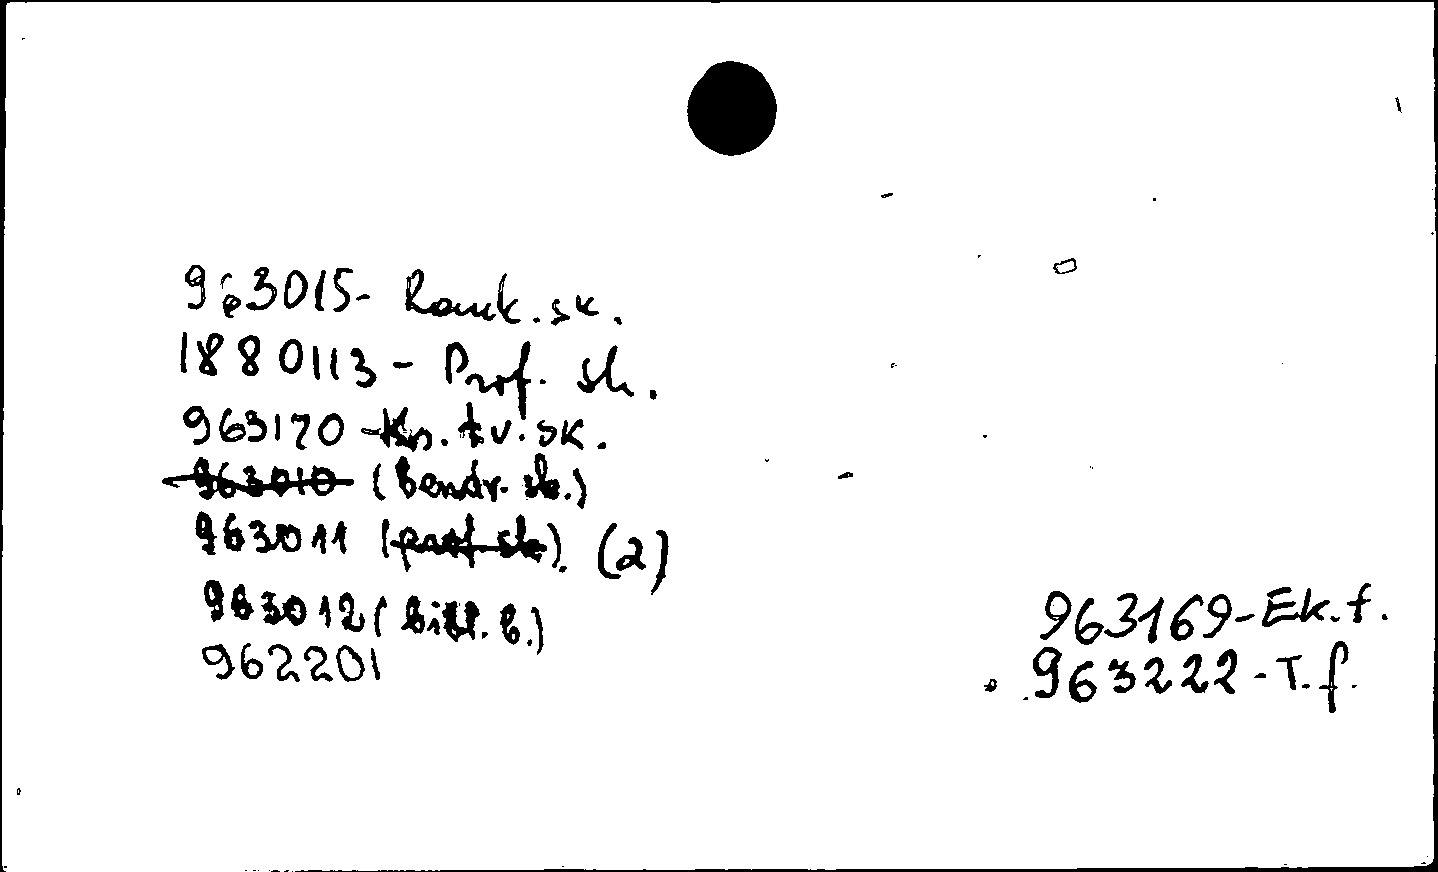 963015- Rank. sk.
1880113 - Prof. sk.
963170 - Kn. tv. sk.
963010 (Bendr. sk.)
963011 (prof. sk). (2)
963012 (Bibl. b.)
962201
963169-Ek. f.
963222-T. f.